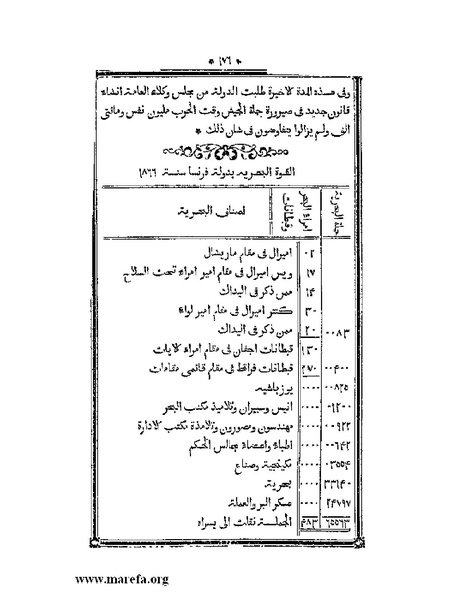 * ١٧٦ *
وفى هذه المدة لاخيرة طلبت الدولة من مجلس وكلاء العامة انشاء
قانون جديد فى صيرورة جملة الجيش وقت الحرب مليون نفس ومائتى
الف ولم يزالوا يتفاوضون فى شان ذلك *
القوة البحرية بدولة فرنسا سنة ١٨٦٦
جملة البحرية امراء البحر وقبطانات اصناف البحرية
اميرال فى مقام ماريشال ٠٢
ويس اميرال فى مقام امير امراء تحت السلاح ١٧
ممن ذكر فى اليداك ١۴
كنتر اميرال فى مقام امير لواء ٣٠
ممن ذكر فى اليداك ٢٠ ٠٠٨٣
قبطانات اجفان فى مقام امراء لايات ١٣٠
قبطانات فراقط فى مقام قائمى مقامات ٢٧٠ ٠٠۴٠٠
يوزباشيه ٠٠٠٠ ٠٠٨٢٥
انيس وسبيران وتلاميذ مكتب البحر ٠٠٠٠ ٠١٢٠٠
مهندسون ومصورون وتلامذة مكتب لادارة ٠٠٠٠ ٠٠٩٢٢
اطباء واعضاء مجالس الحكم ٠٠٠٠ ٠٠٦۴٢
مكينجية وصناع ٠٠٠٠ ٠٣٥٥۴
بحرية ٠٠٠٠ ٣٣١۴٠
عسكر البر والعملة ٠٠٠٠ ٢۴٧٩٧
الجملة نقلت الى يسراه ۴٨٣ ٦٥٥٦٣
www.marefa.org